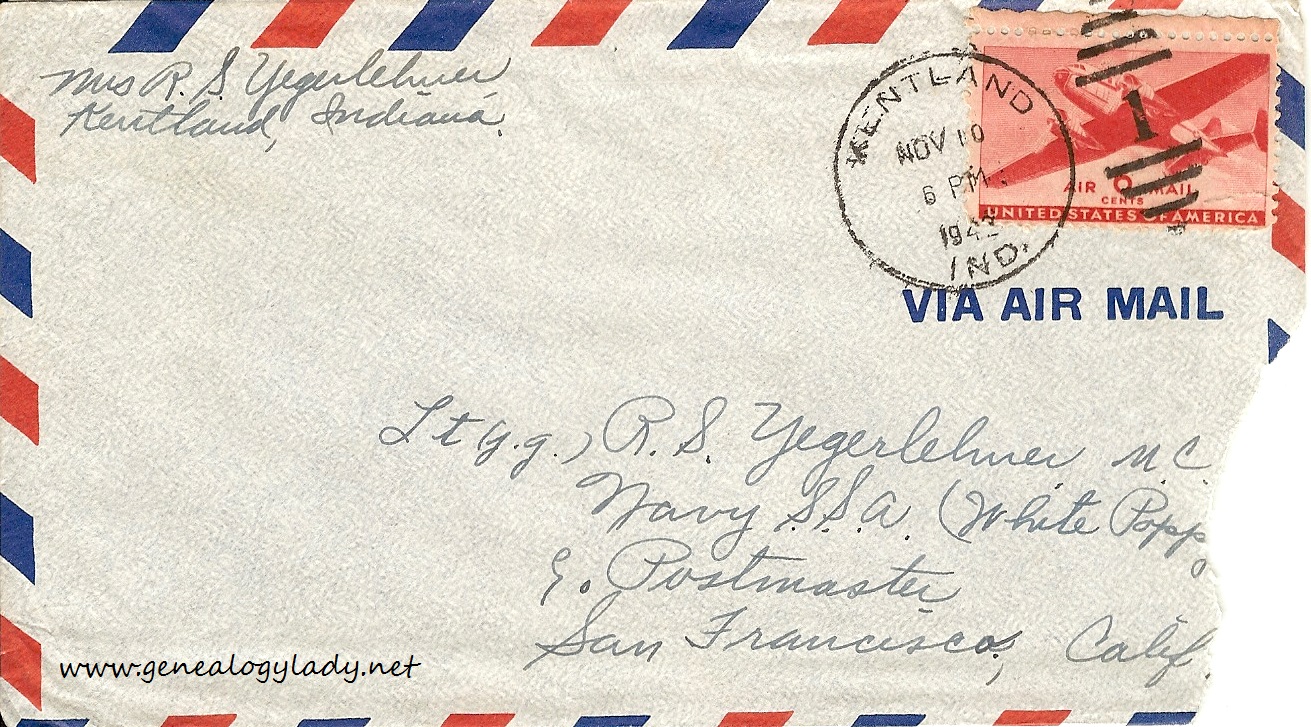 Mrs R. S. Yegerlehner
Kentland, Indiana.
KENTLAND
NOV 10
6 PM
1942
IND.
1
AIR 6 MAIL
CENTS
UNITED STATES OF AMERICA
VIA AIR MAIL
Lt (j.g.) R. S. Yegerlehner M C
Navy S.S.A. (White Popp
Postmaster
San Francisco, Calif.
www.genealogylady.net